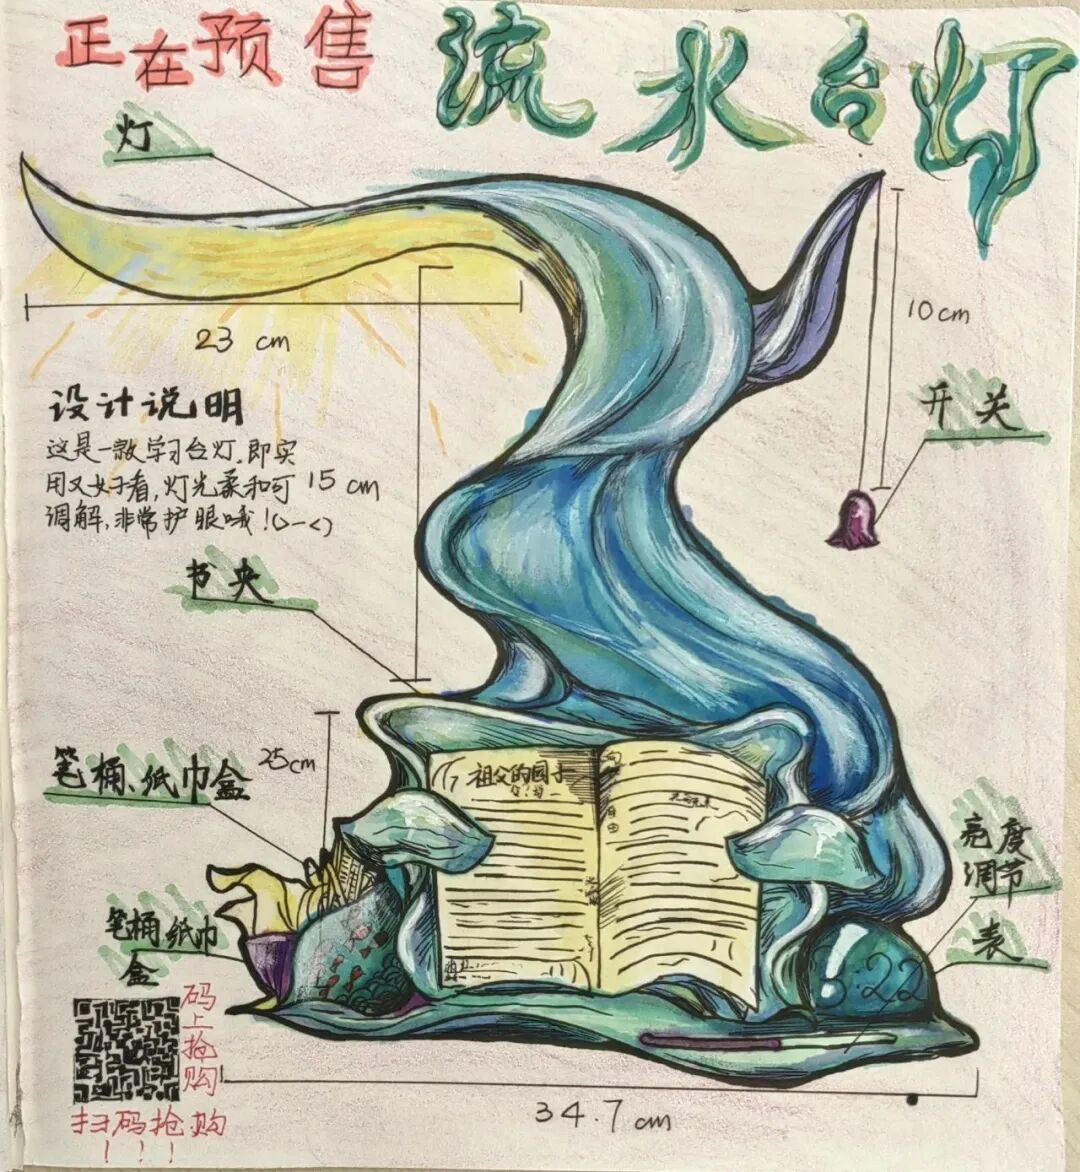 正在预售
流水台灯
灯
10cm
23 cm
开关
设计说明
这是一款学习台灯.即实
用又好看,灯光柔和可
调解,非常护眼哦!(>-<)
15 cm
书夹
笔桶、纸巾盒
25cm
祖父的园子
自由
亮度
调节
表
笔桶纸巾
盒
:22
码上抢购
扫码抢购
!!!
34.7cm